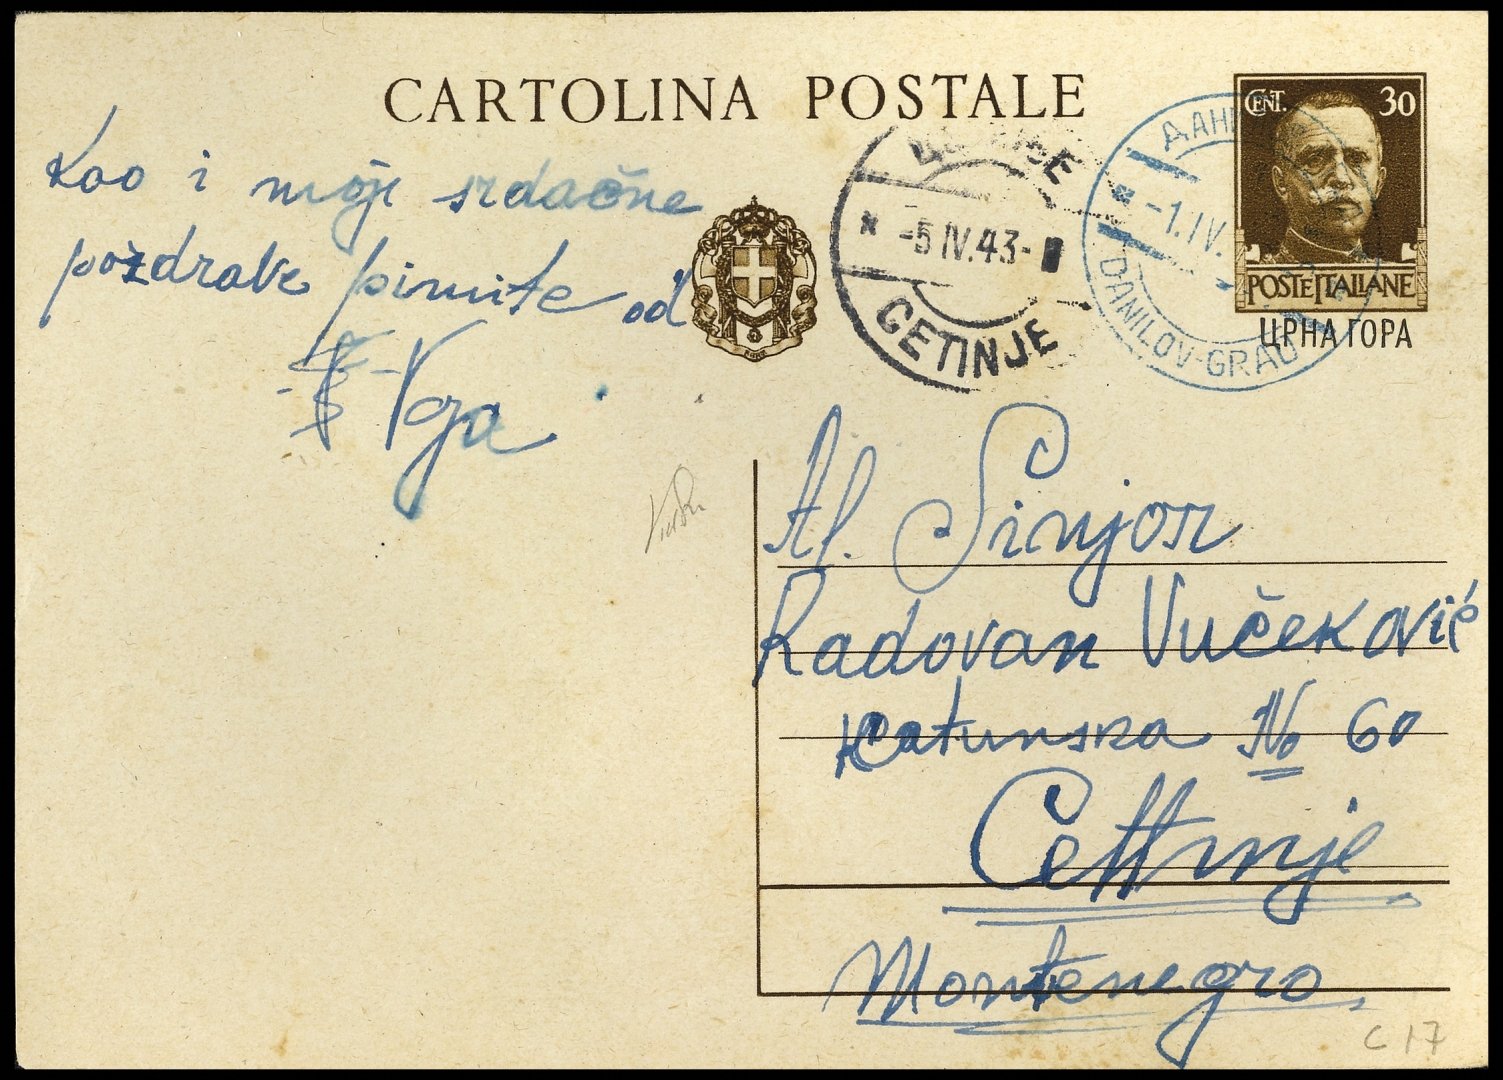 CARTOLINA POSTALE
CENT. 30
POSTE ITALIANE
ЦРНА ГОРА
-5 IV. 43-
CETINJE
-1. IV.
DANILOV-GRAD
Kao i moje srdačne
pozdrave pimite od
Al. Sinjor
Radovan Vučeković
Katunska No 60
Cettinje
Montenegro
C 17